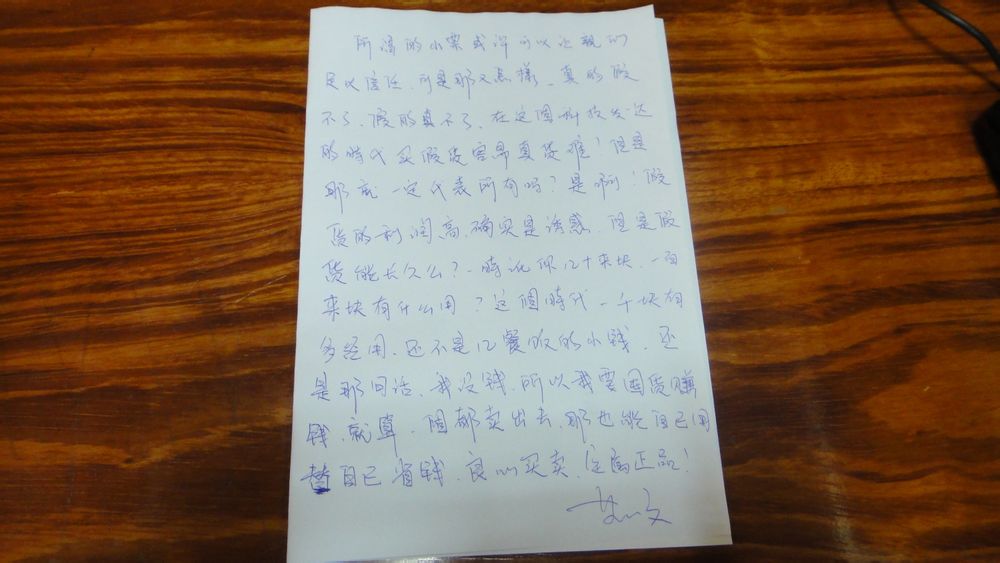 所谓的小票或许可以让親们
足以信任、可是那又怎樣、真的假
不了、假的真不了、在这個科技发达
的時代买假货容易真货难！但是
那就一定代表所有吗？是啊！假
货的利润高、确实是诱惑、但是假
货能长久么？一時讹你几十来块、一百
来块有什么用？这個時代一千块有
多经用、还不是几餐饭的小钱、还
是那句话、我没钱、所以我要囤货賺
钱、就算一個都卖出去、那也能自己用
替自己省钱、良心买卖、正品！